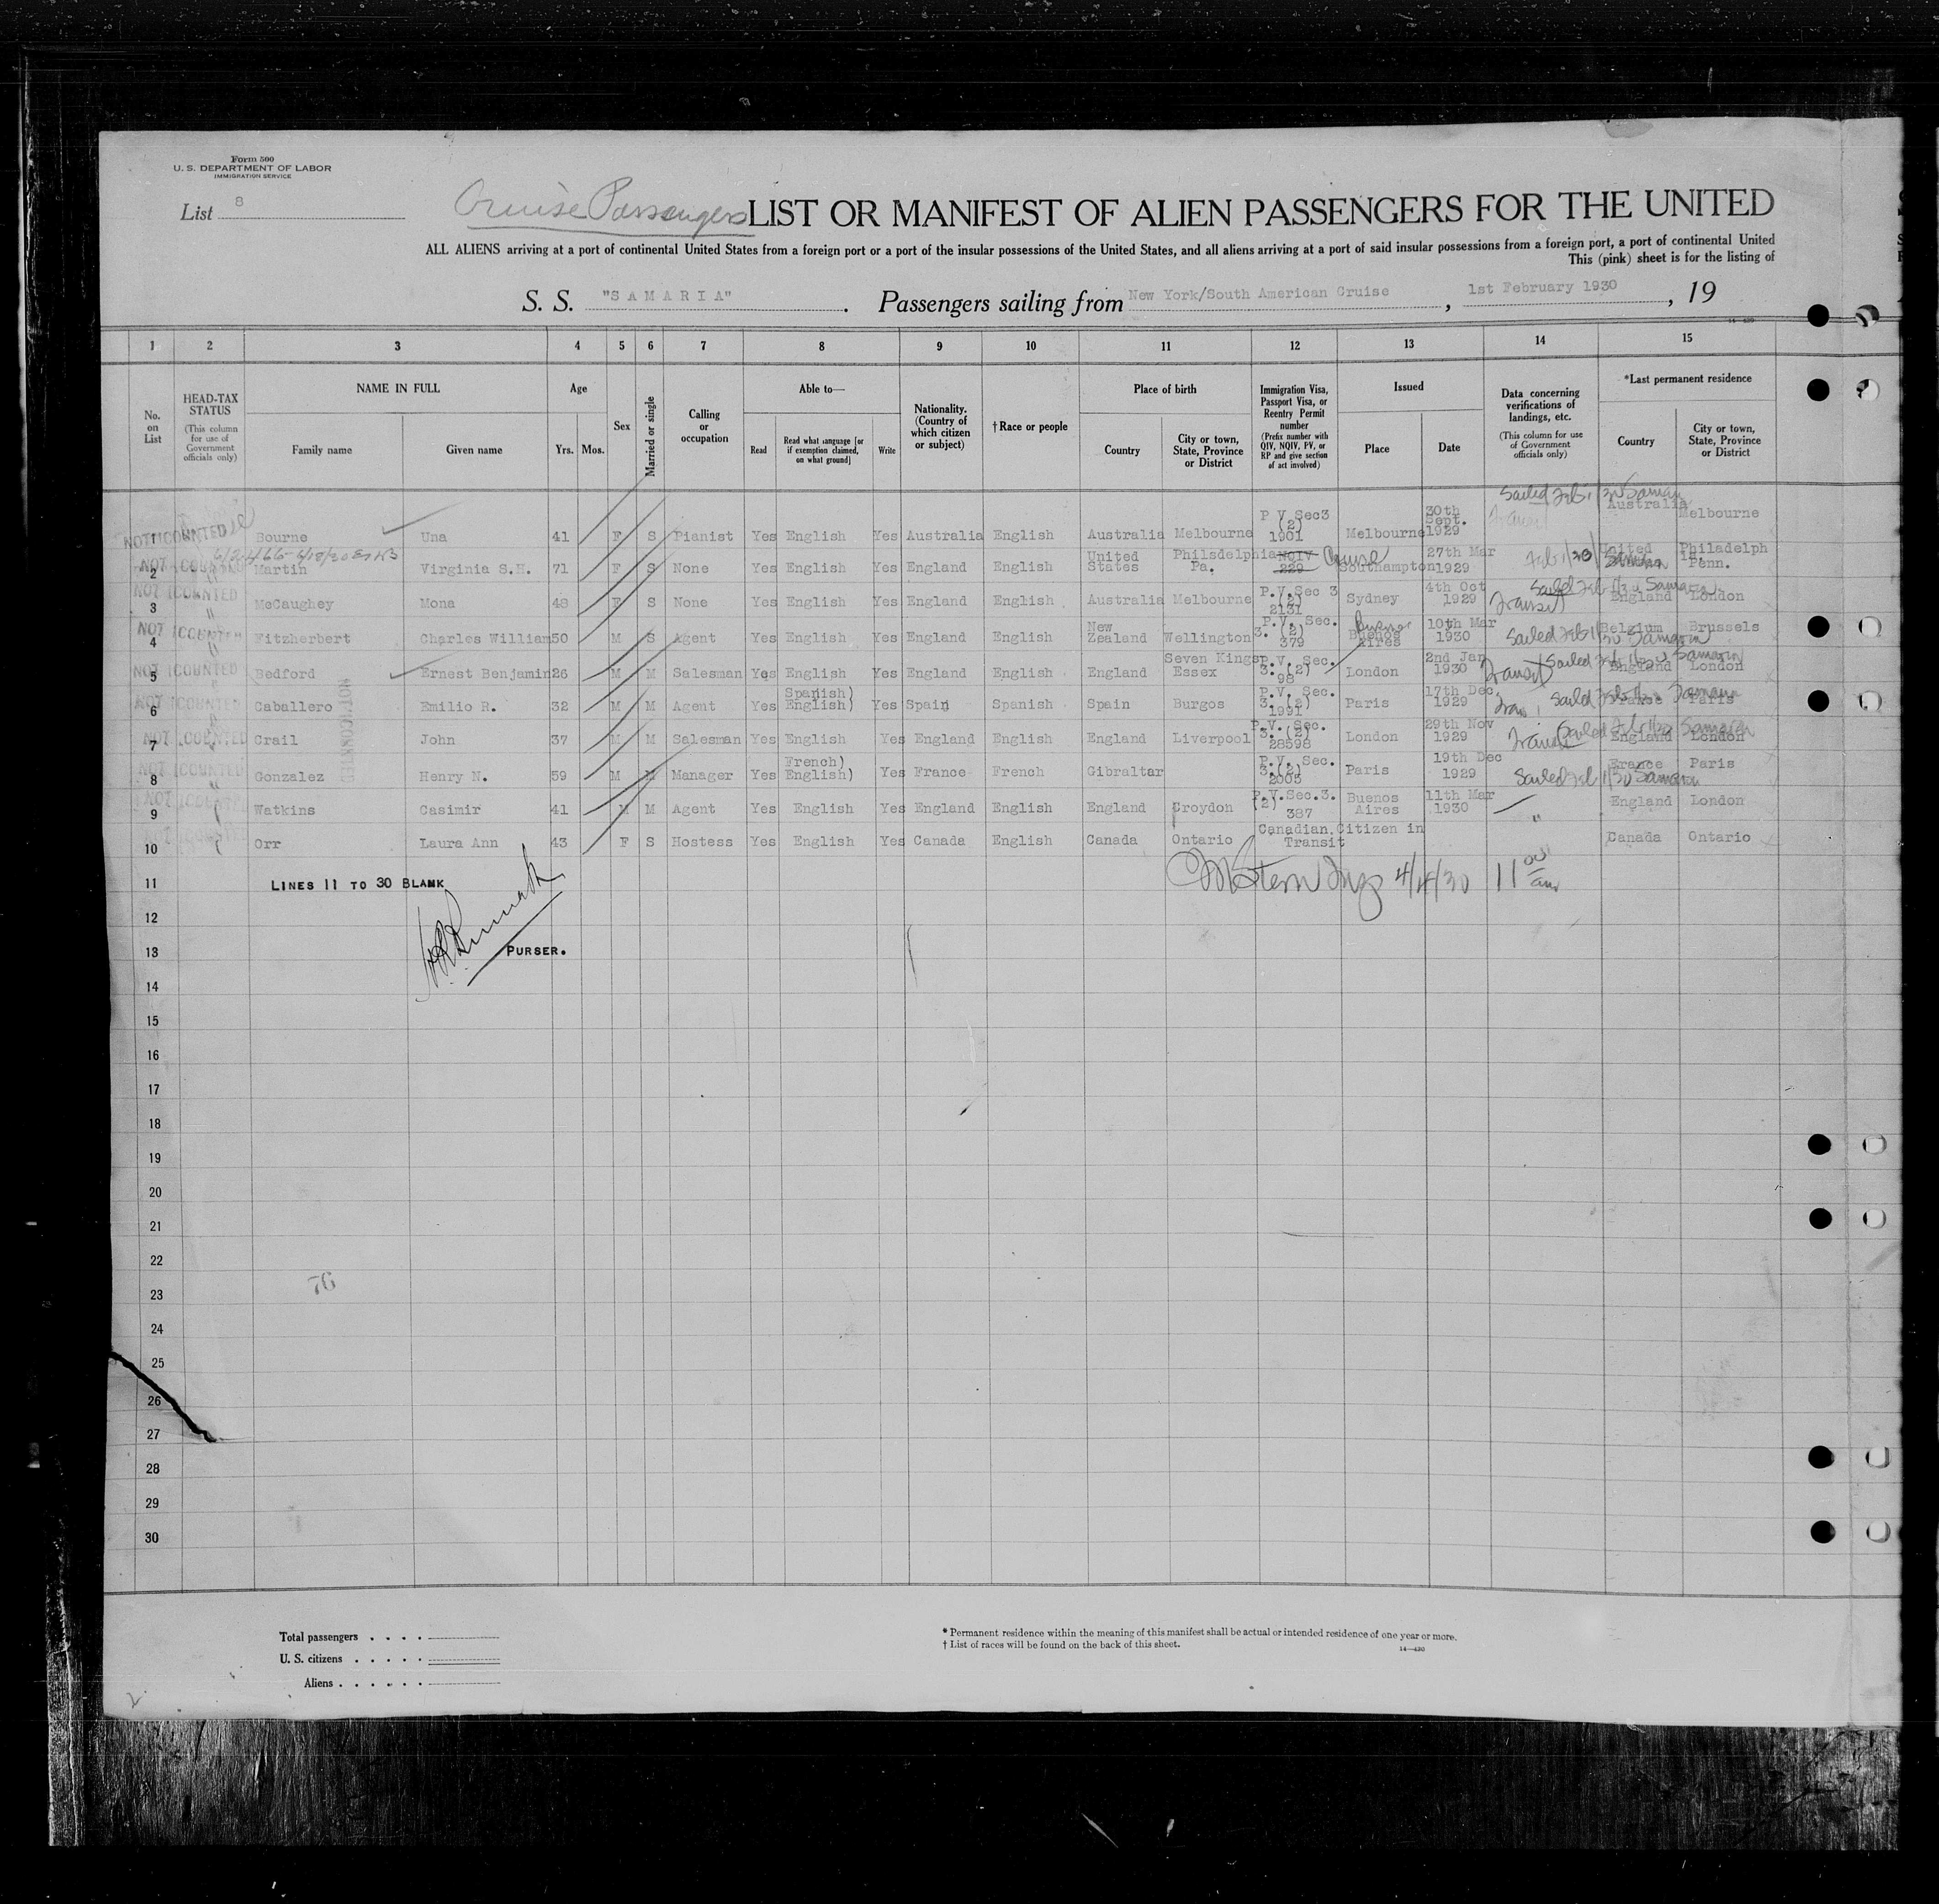 Form 500
U. S. DEPARTMENT OF LABOR
IMMIGRATION SERVICE
List 8
Cruise Passengers LIST OR MANIFEST OF ALIEN PASSENGERS FOR THE UNITED
ALL ALIENS arriving at a port of continental United States from a foreign port or a port of the insular possessions of the United States, and all aliens arriving at a port of said insular possessions from a foreign port, a port of continental United
This (pink) sheet is for the listing of
S. S. "SAMARIA". Passengers sailing from New York/South American Cruise, 1st February 1930, 19
1 2 3 4 5 6 7 8 9 10 11 12 13 14 15
No. on List
HEAD-TAX STATUS (This column for use of Government officials only)
NAME IN FULL Family name Given name
Age Yrs. Mos.
Sex
Married or single
Calling or occupation
Able to— Read Read what language [or if exemption claimed, on what ground] Write
Nationality. (Country of which citizen or subject)
†Race or people
Place of birth Country City or town, State, Province or District
Immigration Visa, Passport Visa, or Reentry Permit number (Prefix number with QIV, NQIV, PV, or RP and give section of act involved)
Issued Place Date
Data concerning verifications of landings, etc. (This column for use of Government officials only)
*Last permanent residence Country City or town, State, Province or District
NOT COUNTED Bourne Una 41 F S Pianist Yes English Yes Australia English Australia Melbourne P V Sec3 (2) 1901 Melbourne 30th Sept. 1929 Sailed Feb 1/30 Samaria Transit Australia Melbourne
2 NOT COUNTED Martin Virginia S.H. 71 F S None Yes English Yes England English United States Philsdelphia Pa. NQIV 229 Cruise Southampton 27th Mar 1929 Feb 1/30 Samaria United Philadelph Penn.
3 NOT COUNTED McCaughey Mona 48 F S None Yes English Yes England English Australia Melbourne P.V.Sec 3 (2) 2131 Sydney 4th Oct 1929 Transit Sailed Feb 1/30 Samaria England London
4 NOT COUNTED Fitzherbert Charles William 50 M S Agent Yes English Yes England English New Zealand Wellington P.V. Sec. 3. (2) 379 Buenos Aires 10th Mar 1930 Sailed Feb 1/30 Samaria Belgium Brussels
5 NOT COUNTED Bedford Ernest Benjamin 26 M M Salesman Yes English Yes England English England Seven Kings Essex P.V. Sec. 3. (2) 98 London 2nd Jan 1930 Transit Sailed Feb 1/30 Samaria England London
6 NOT COUNTED Caballero Emilio R. 32 M M Agent Yes Spanish) English) Yes Spain Spanish Spain Burgos P.V. Sec. 3. (2) 1991 Paris 17th Dec 1929 Sailed Feb 1/30 Samaria France Paris
7 NOT COUNTED Crail John 37 M M Salesman Yes English Yes England English England Liverpool P.V. Sec. 3. (2) 28598 London 29th Nov 1929 Transit Sailed Feb 1/30 Samaria England London
8 NOT COUNTED Gonzalez Henry N. 59 M M Manager Yes French) English) Yes France French Gibraltar P.V. Sec. 3.(2) 2005 Paris 19th Dec 1929 Sailed Feb 1/30 Samaria France Paris
9 NOT COUNTED Watkins Casimir 41 M M Agent Yes English Yes England English England Croydon P.V.Sec.3. (2) 387 Buenos Aires 11th Mar 1930 " England London
10 NOT COUNTED Orr Laura Ann 43 F S Hostess Yes English Yes Canada English Canada Ontario Canadian Citizen in Transit Canada Ontario
11 LINES 11 TO 30 BLANK Stern Insp 4/4/30 11 00 am
12
13 PURSER.
14
15
16
17
18
19
20
21
22
23
24
25
26
27
28
29
30
76
Total passengers
U. S. citizens
Aliens
* Permanent residence within the meaning of this manifest shall be actual or intended residence of one year or more.
† List of races will be found on the back of this sheet.
14—430
2